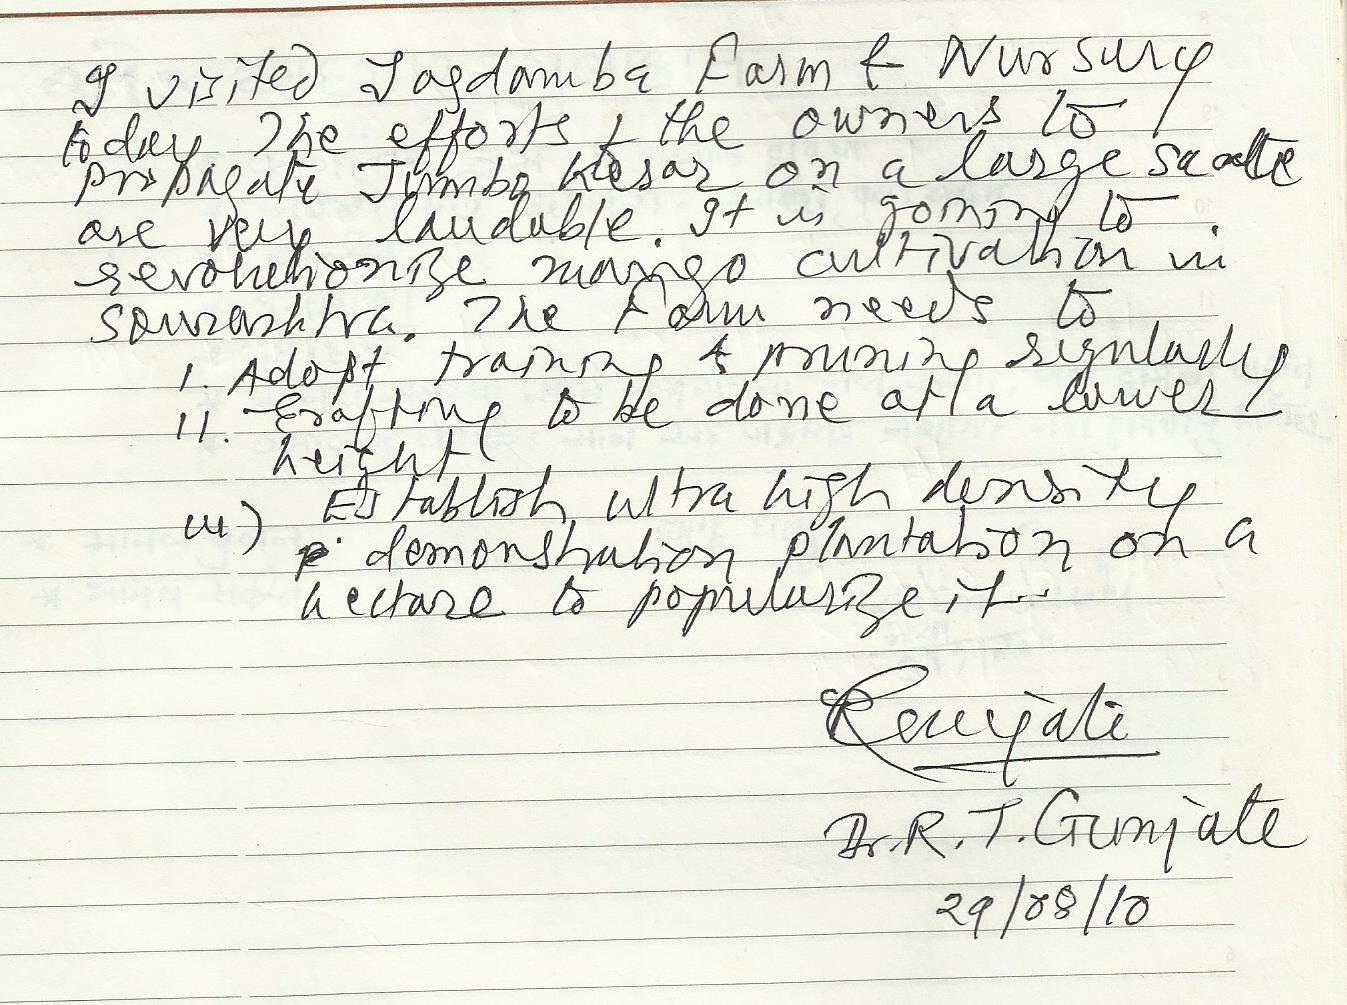 I visited Jagdamba Farm & Nursury
today. The efforts of the owners to
propagate Jumbo Kesar on a large scale
are very laudable. It is going to
revolutionize mango cultivation in
Sourashtra. The Farm needs to
i. Adopt training & pruning regularly
ii. Grafting to be done at a lower
height
iii) Establish ultra high density
demonstration plantation on a
hectare to popularize it.
RGunjate
Dr. R. T. Gunjate
29/08/10